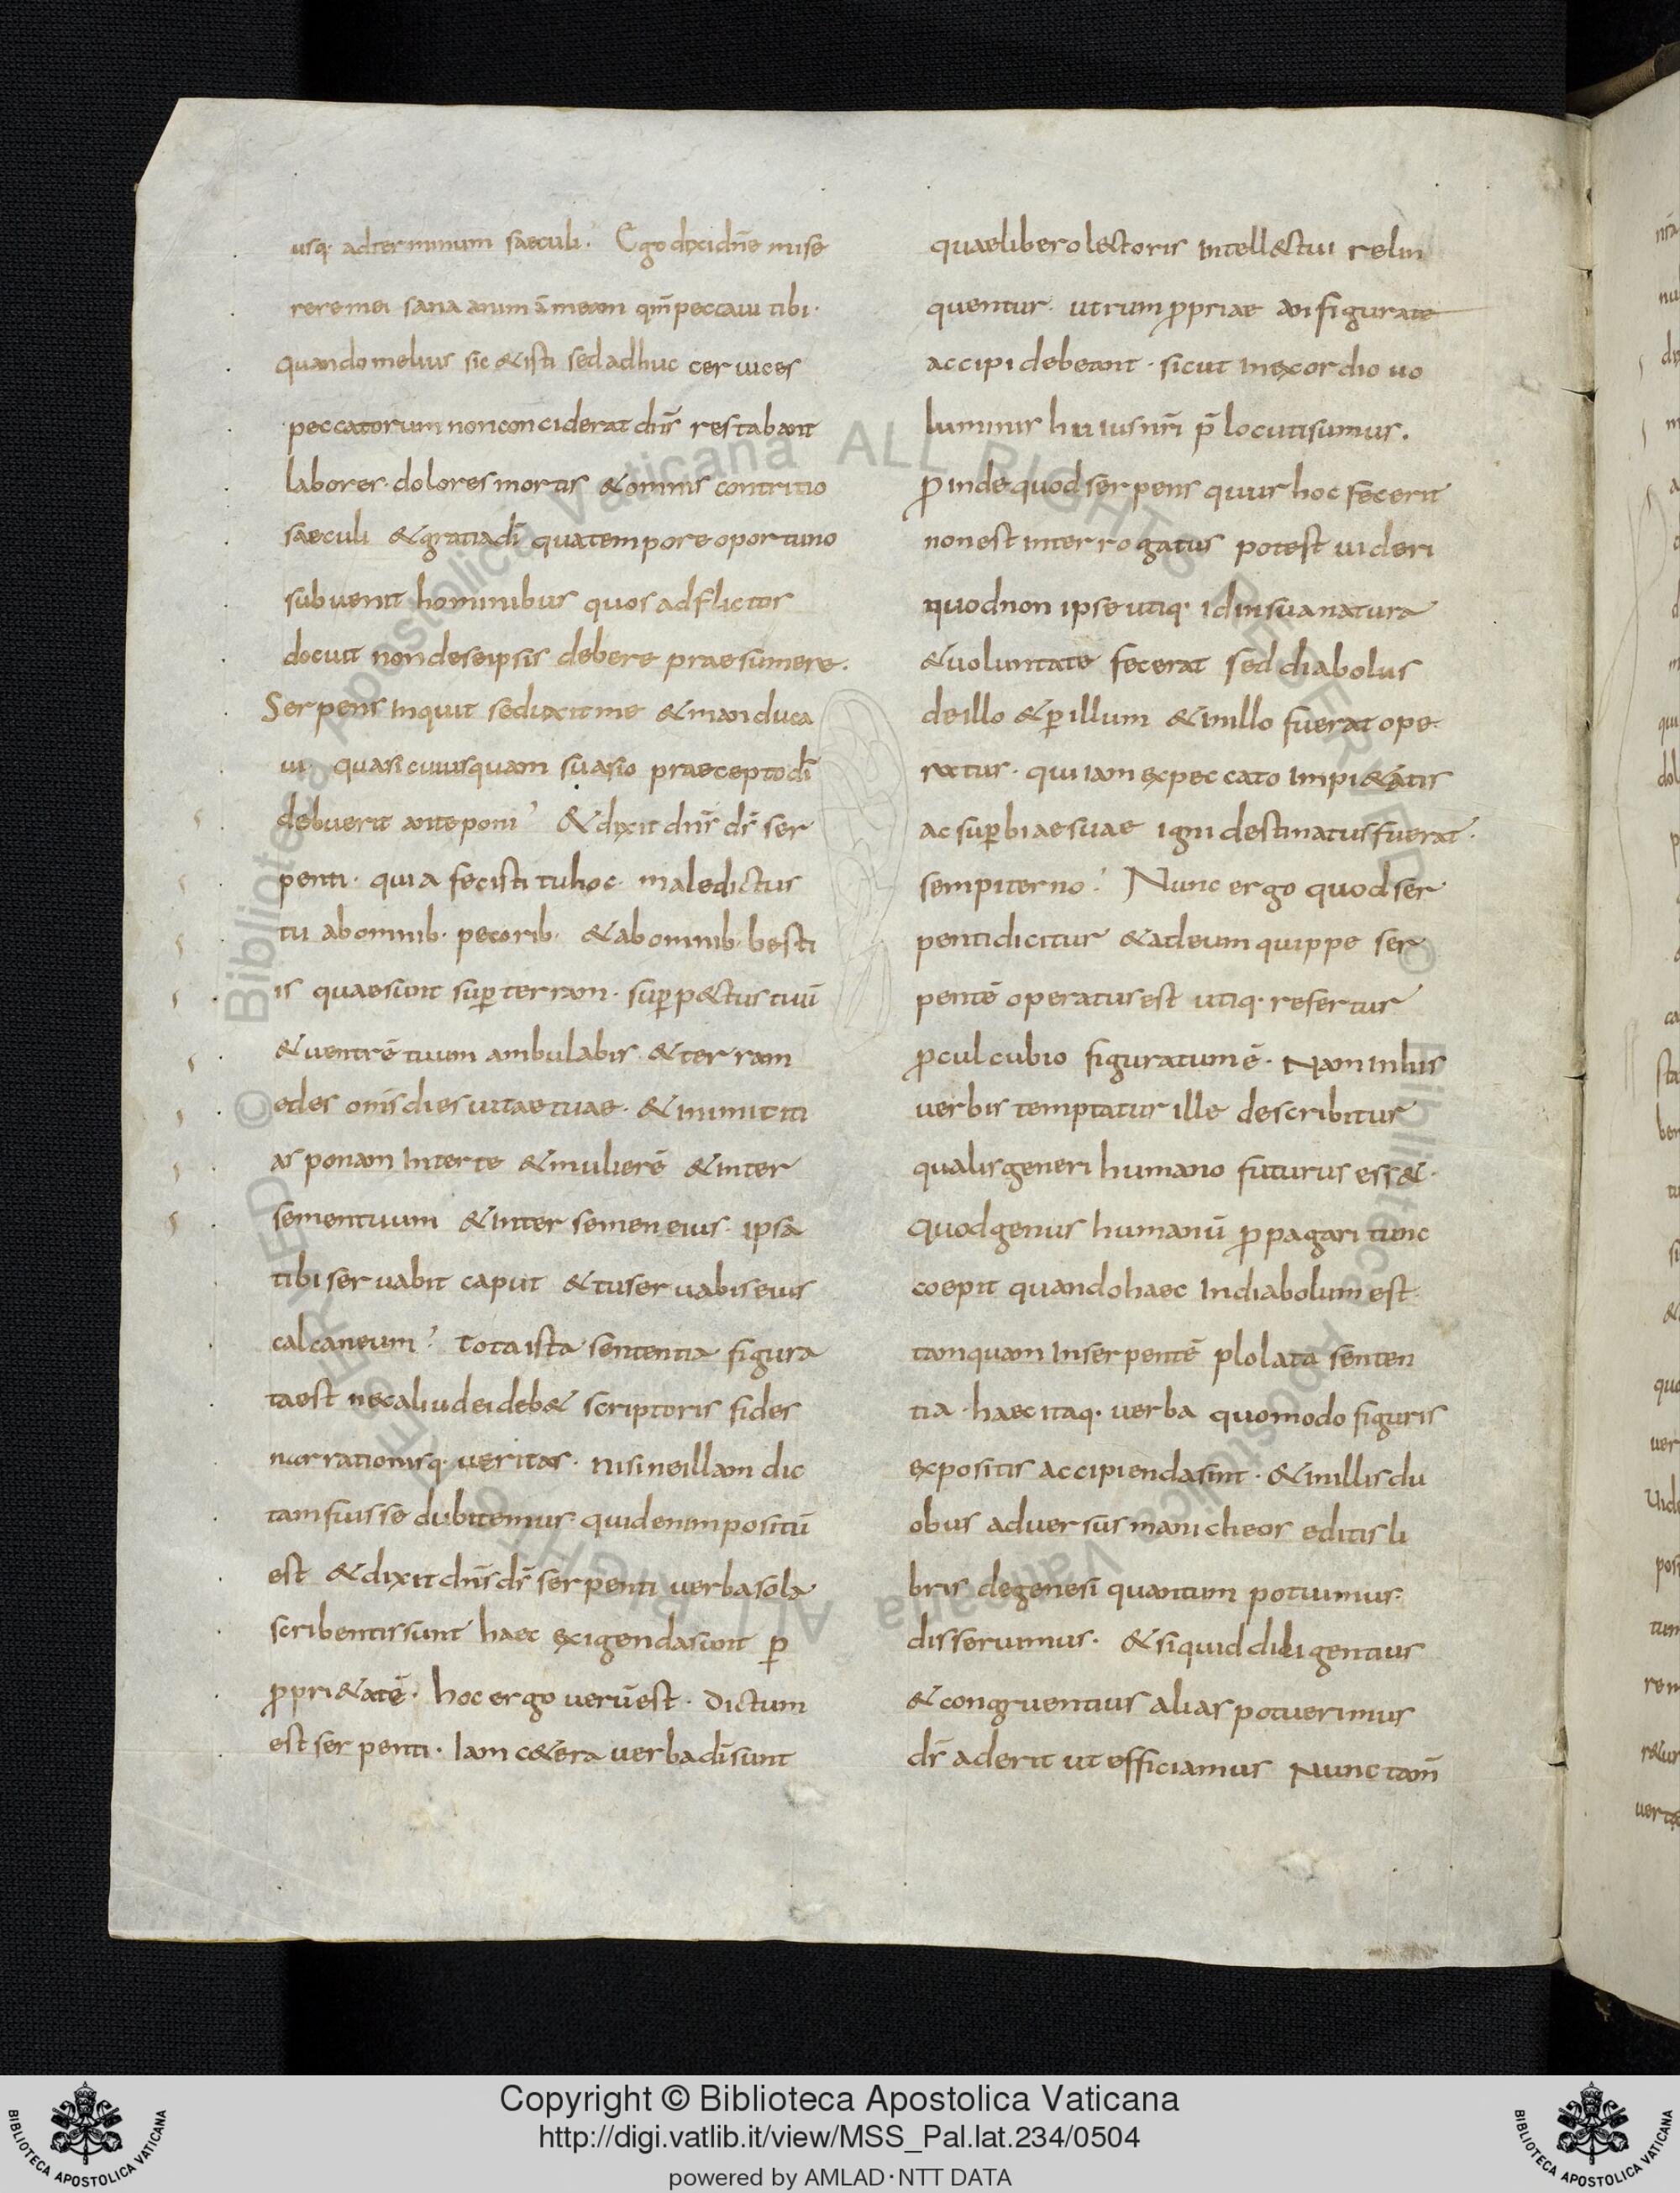 usq· adterminum saeculi. Egodixidn̄e mise
reremei sana animāmeam qm̄peccaui tibi·
quandomelius sic &isti sedadhuc ceruices
peccatorum nonconciderat dn̄s restabant
labores· doloresmortis &omnis contritio
saeculi &gratiadī quatemporeoportuno
subuenit hominibus quos adflictos
docuit nondeseipsis debere praesumere·
Serpens inquit seduxitme &manduca
ui· quasicuiusquam suasio praeceptodī
debuerit anteponi &dixit dn̄s ds̄ ser
penti· quia fecisti tuhoc· maledictus
tu abomnib· pecorib· &abomnib· besti
is quaesunt sup̱terram· sup̱pectustuū
&uentrē tuum ambulabis· &terram
edes om̄sdiesuitaetuae· &inimiciti
as ponam interte &mulierē &inter
sementuum &inter semen eius· ipsa
tibiseruabit caput &tuseruabiseius
calcaneum totaista sententia figura
taest necaliudeideb& scriptoris fides
narrationisq· ueritas· nisineillam dic
tamfuisse dubitemus· quodenimpositū
est &dixitdn̄sds̄ serpenti uerbasola
scribentissunt haec exigendasunt p̱
ꝓpri&atē· hocergo uerūest· dictum
estserpenti· Iam c&era uerbadīsunt
quaeliberolectoris intellectui relin
quentur· utrumꝓpriae anfigurate
accipidebeant· sicut inexordio uo
luminis huiusnr̄i p̄locutisumus.
ꝓindequodserpens quurhocfecerit
nonestinterrogatus potest uideri
quodnon ipseutiq· idinsuanatura
&uoluntate fecerat sed diabolus
deillo &p̱illum &inillo fueratope
ratus· quiiamexpeccato impi&atis
acsup̱biaesuae igni destinatusfuerat·
sempiterno Nunc ergo quodser
pentidicitur &adeumquippe ser
pentē operatusest utiq· refertur
ꝓculdubio figuratumē· Naminhis
uerbis temptatur ille describitur
qualisgenerihumano futurus ess&·
quodgenus humanū ꝓpagari tunc
coepit quandohaec Indiabolumest
tamquam Inserpentē plolata senten
tia· haecitaq· uerba quomodofiguris
expositis accipiendasint· &inillisdu
obus aduersusmanicheos editisli
bris degenesi quantum potuimus·
disseruimus· &siquiddiligentius
&congruentius alias potuerimus
ds̄ aderit utefficiamus Nunctam̄
Copyright © Biblioteca Apostolica Vaticana
http://digi.vatlib.it/view/MSS_Pal.lat.234/0504
powered by AMLAD·NTT DATA
BIBLIOTECA APOSTOLICA VATICANA
BIBLIOTECA APOSTOLICA VATICANA